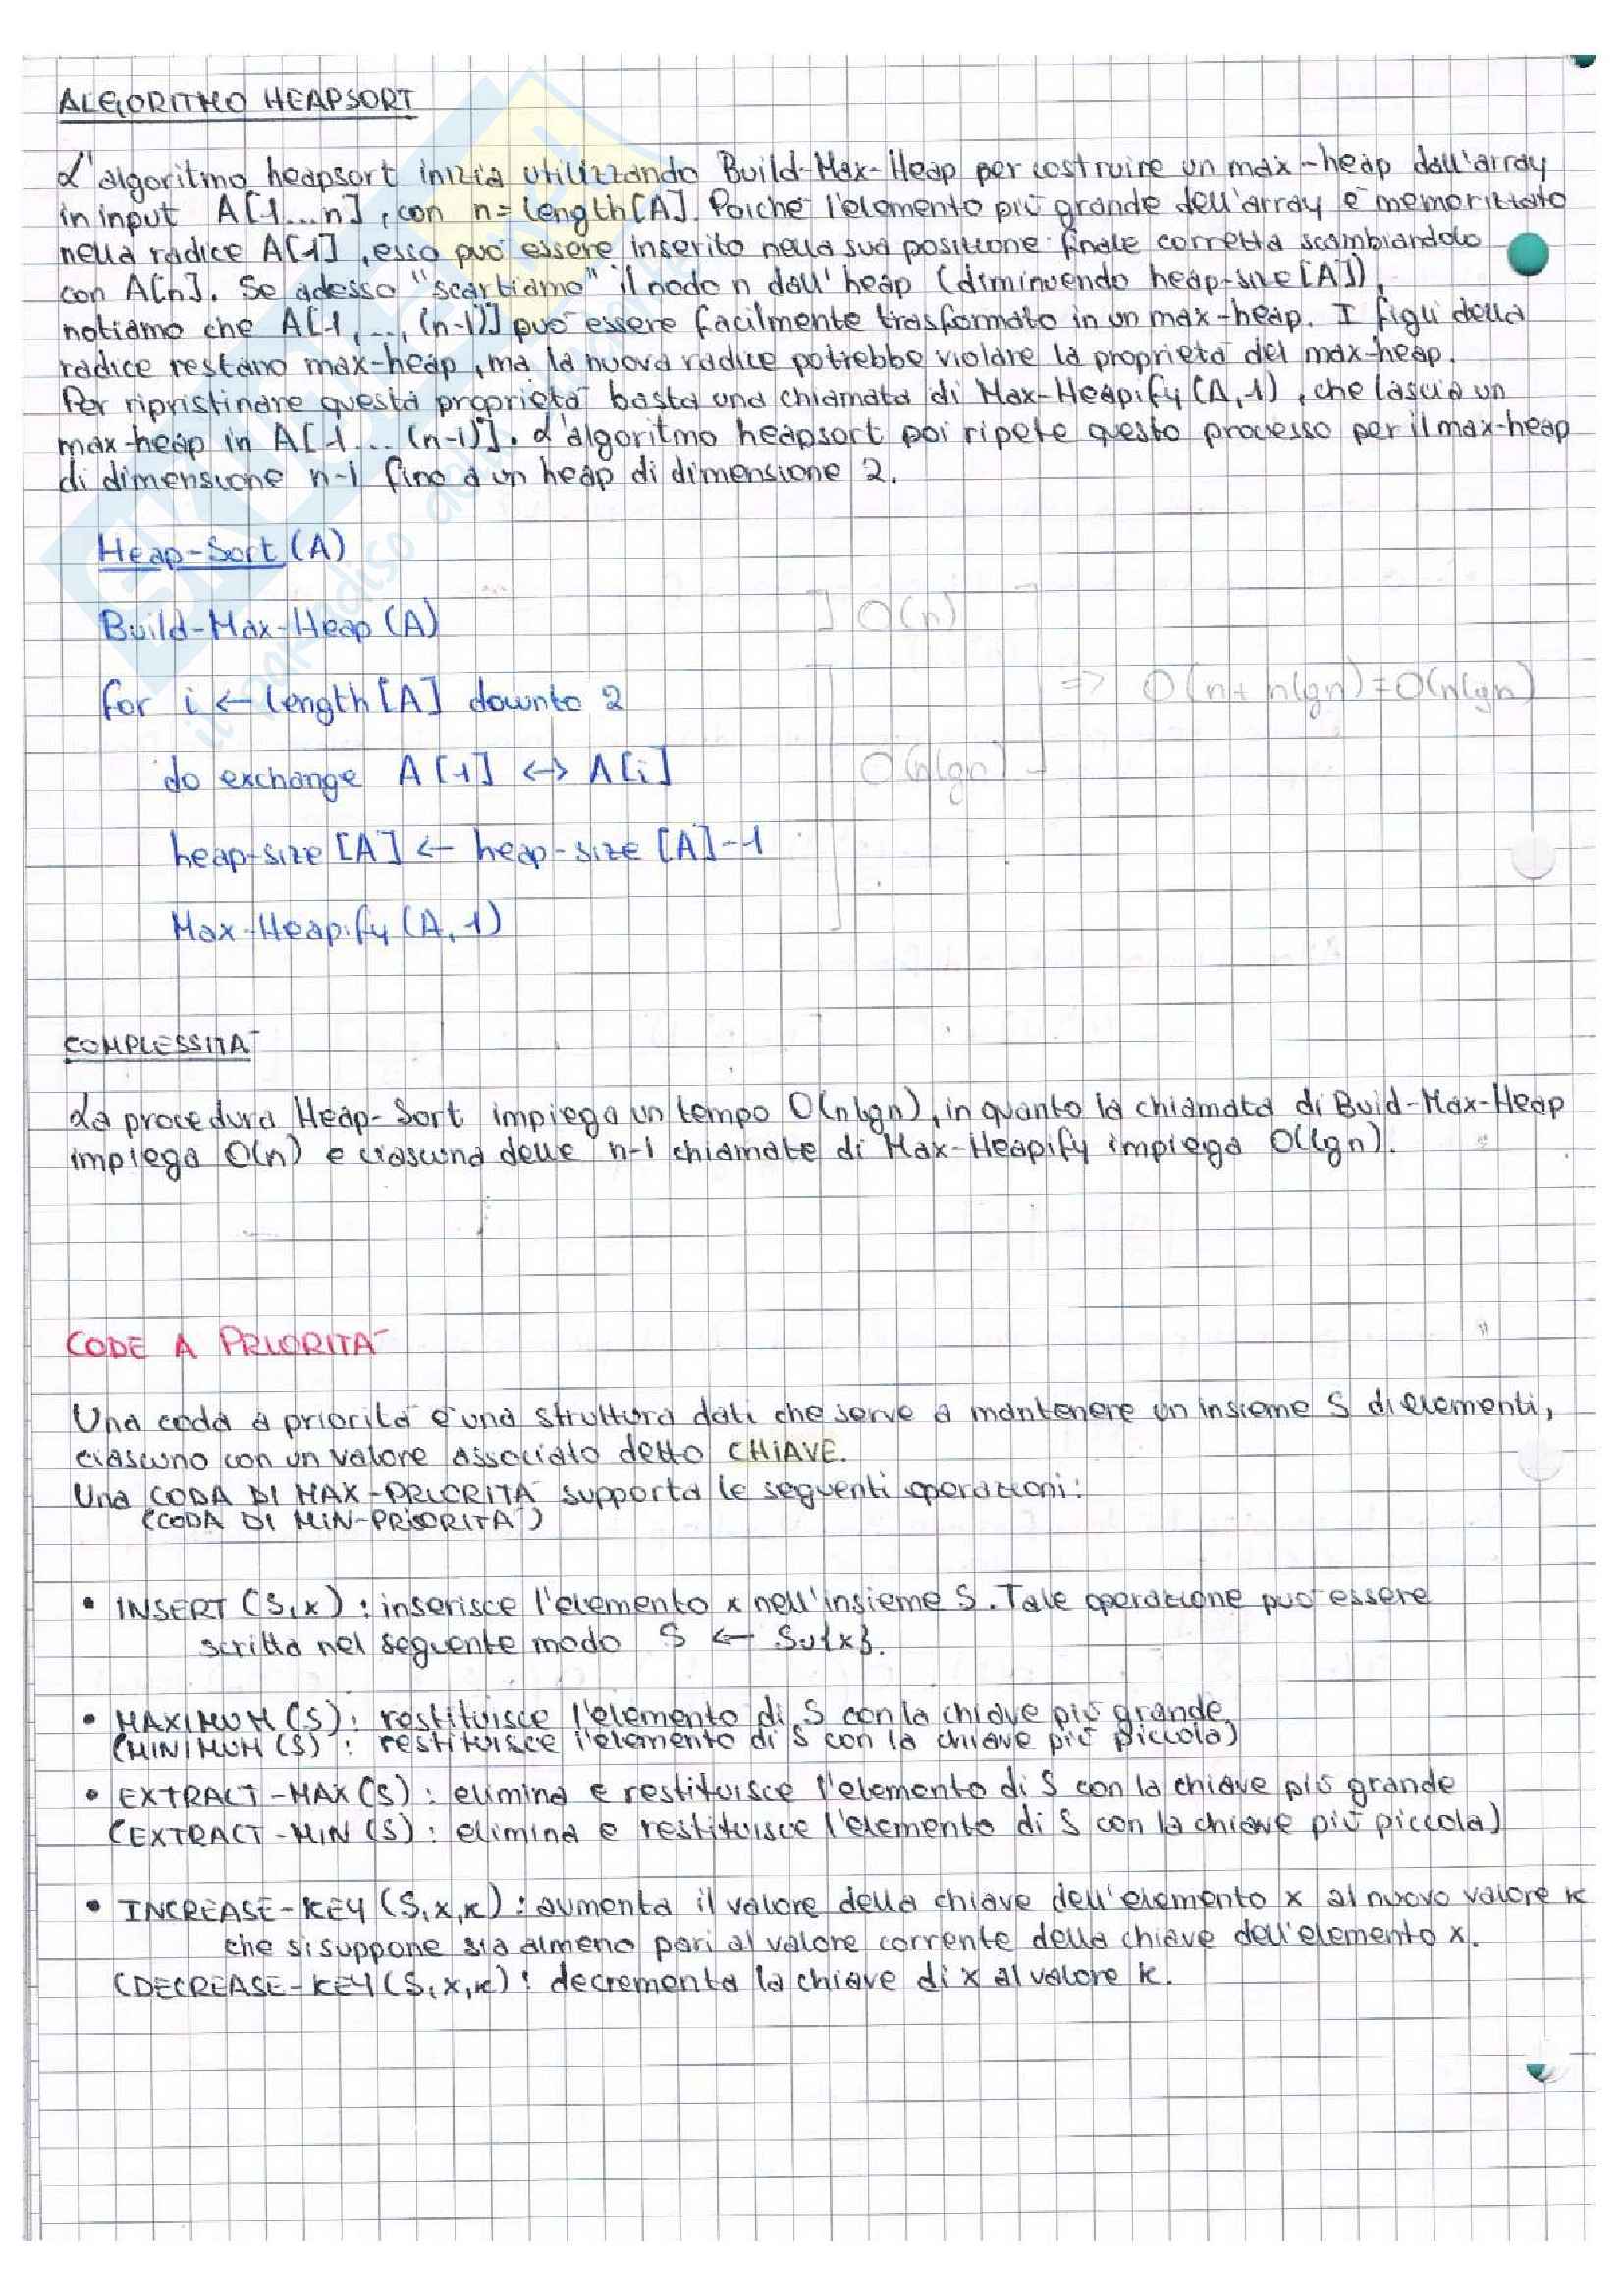 ALGORITMO HEAPSORT
L'algoritmo heapsort inizia utilizzando Build-Max-Heap per costruire un max-heap dall'array
in input A[1...n], con n = length[A]. Poiché l'elemento più grande dell'array è memorizzato
nella radice A[1], esso può essere inserito nella sua posizione finale corretta scambiandolo
con A[n]. Se adesso "scartiamo" il nodo n dall'heap (diminuendo heap-size[A]),
notiamo che A[1,..., (n-1)] può essere facilmente trasformato in un max-heap. I figli della
radice restano max-heap, ma la nuova radice potrebbe violare la proprietà del max-heap.
Per ripristinare questa proprietà basta una chiamata di Max-Heapify(A,1), che lascia un
max-heap in A[1...(n-1)]. L'algoritmo heapsort poi ripete questo processo per il max-heap
di dimensione n-1 fino a un heap di dimensione 2.
Heap-Sort(A)
Build-Max-Heap(A) ] O(n)
for i ← length[A] downto 2 => O(n + nlgn) = O(nlgn)
do exchange A[1] ↔ A[i] O(nlgn)
heap-size[A] ← heap-size[A]-1
Max-Heapify(A,1)
COMPLESSITÀ
La procedura Heap-Sort impiega un tempo O(nlgn), in quanto la chiamata di Buid-Max-Heap
impiega O(n) e ciascuna delle n-1 chiamate di Max-Heapify impiega O(lgn).
CODE A PRIORITÀ
Una coda a priorità è una struttura dati che serve a mantenere un insieme S di elementi,
ciascuno con un valore associato detto CHIAVE.
Una CODA DI MAX-PRIORITÀ supporta le seguenti operazioni:
(CODA DI MIN-PRIORITÀ)
• INSERT (S,x): inserisce l'elemento x nell'insieme S. Tale operazione può essere
scritta nel seguente modo S ← S∪{x}.
• MAXIMUM(S): restituisce l'elemento di S con la chiave più grande
(MINIMUM(S): restituisce l'elemento di S con la chiave più piccola)
• EXTRACT-MAX(S): elimina e restituisce l'elemento di S con la chiave più grande
(EXTRACT-MIN(S): elimina e restituisce l'elemento di S con la chiave più piccola)
• INCREASE-KEY (S,x,k): aumenta il valore della chiave dell'elemento x al nuovo valore k
che si suppone sia almeno pari al valore corrente della chiave dell'elemento x.
(DECREASE-KEY(S,x,k): decrementa la chiave di x al valore k.